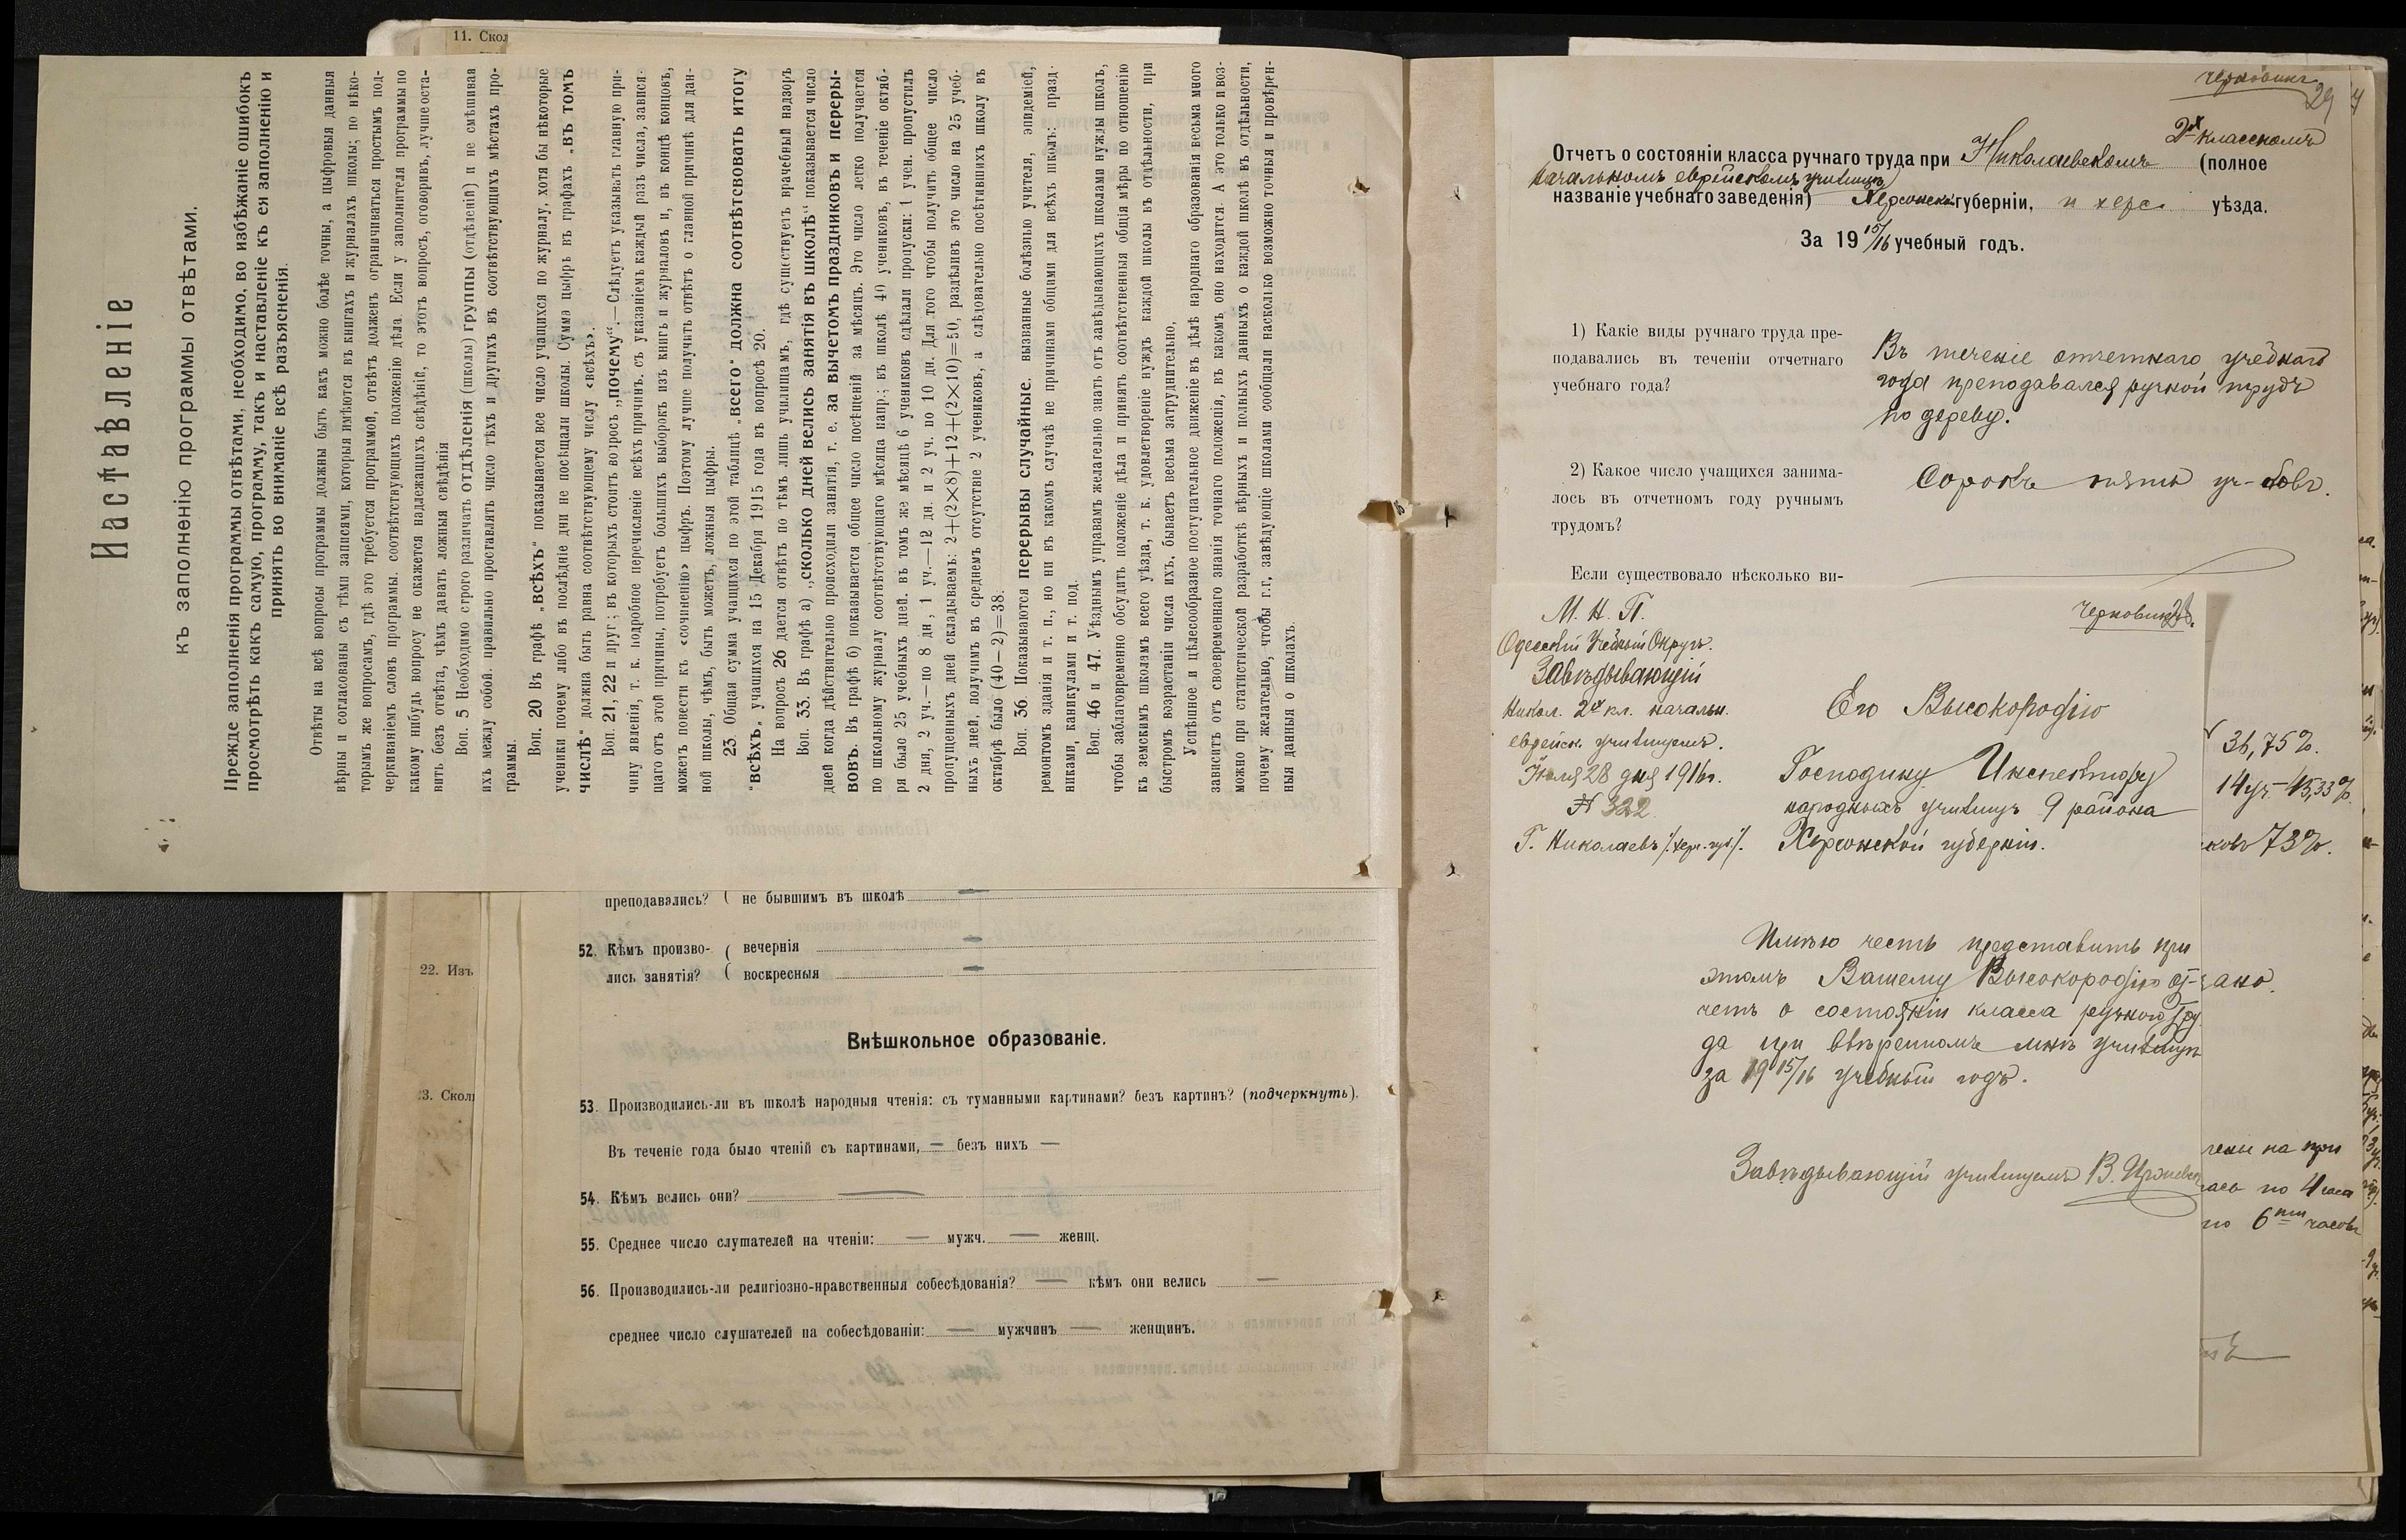 11. Скол
Наставленіе
къ заполненію программы отвѣтами.
Прежде заполненія программы отвѣтами, необходимо, во избѣжаніе ошибокъ
просмотрѣть какъ самую, программу, такъ и наставленіе къ ея заполненію и
принять во вниманіе всѣ разъясненія.
Отвѣты на всѣ вопросы программы должны быть какъ можно болѣе точны, а цыфровыя данныя
вѣрны и согласованы съ тѣми записями, которыя имѣются въ книгахъ и журналахъ школы; по нѣко-
торымъ же вопросамъ, гдѣ это требуется программой, отвѣтъ долженъ ограничиваться простымъ под-
черкиваніемъ словъ программы, соотвѣтствующихъ положенію дѣла. Если у заполнителя программы по
какому нибудь вопросу не окажется надлежащихъ свѣдѣній, то этотъ вопросъ, оговоривъ, лучше оста-
вить безъ отвѣта, чѣмъ давать ложныя свѣдѣнія
Воп. 5 Необходимо строго различать отдѣленія (школы) группы (отдѣленій) и не смѣшивая
ихъ между собой, правильно проставлять число тѣхъ и другихъ въ соотвѣтствующихъ мѣстахъ про-
граммы.
Воп. 20 Въ графѣ „всѣхъ“ показывается все число учащихся по журналу, хотя бы нѣкоторые
ученики почему либо въ послѣдніе дни не посѣщали школы. Сумма цыфръ въ графахъ „въ томъ
числѣ“ должна быть равна соотвѣтствующему числу «всѣхъ».
Воп. 21, 22 и друг; въ которыхъ стоитъ вопросъ „почему“.—Слѣдуетъ указывать главную при-
чину явленія, т. к. подробное перечисленіе всѣхъ причинъ, съ указаніемъ каждый разъ числа, завися-
щаго отъ этой причины, потребуетъ большихъ выборокъ изъ книгъ и журналовъ и, въ концѣ концовъ,
можетъ повести къ «сочиненію» цыфръ. Поэтому лучше получить отвѣтъ о главной причинѣ для дан-
ной школы, чѣмъ, быть можетъ, ложныя цыфры.
23. Общая сумма учащихся по этой таблицѣ „всего“ должна соотвѣтсвовать итогу
"всѣхъ„ учащихся на 15 Декабря 1915 года въ вопросѣ 20.
На вопросъ 26 дается отвѣтъ по тѣмъ лишь училищамъ, гдѣ существуетъ врачебный надзоръ
Воп. 33. Въ графѣ а) „сколько дней велись занятія въ школѣ“ показывается число
дней когда дѣйствительно происходили занятія, т. е. за вычетомъ праздниковъ и переры-
вовъ. Въ графѣ б) показывается общее число посѣщеній за мѣсяцъ. Это число легко получается
по школьному журналу соотвѣтствующаго мѣсяца напр.; въ школѣ 40 учениковъ, въ теченіе октяб-
ря было 25 учебныхъ дней. въ томъ же мѣсяцѣ 6 учениковъ сдѣлали пропуски: 1 учен. пропустилъ
2 дня, 2 уч.—по 8 дн, 1 уч.—12 дн. и 2 уч. по 10 дн. Для того чтобы получить общее число
пропущенныхъ дней складываемъ: 2+(2×8)+12+(2×10)=50, раздѣливъ это число на 25 учеб-
ныхъ дней, получимъ въ среднемъ отсутствіе 2 учениковъ, а слѣдовательно посѣтившихъ школу въ
октябрѣ было (40—2)=38.
Воп. 36. Показываются перерывы случайные. вызванные болѣзнью учителя, эпидеміей,
ремонтомъ зданія и т. п., но ни въ какомъ случаѣ не причинами общими для всѣхъ школъ: празд-
никами, каникулами и т. под.
Воп. 46 и 47. Уѣзднымъ управамъ желательно знать отъ завѣдывающихъ школами нужды школъ,
чтобы заблаговременно обсудить положеніе дѣла и принять соотвѣтственныя общія мѣры по отношенію
къ земскимъ школамъ всего уѣзда, т. к. удовлетвореніе нуждъ каждой школы въ отдѣльности, при
быстромъ возрастаніи числа ихъ, бываетъ весьма затруднительно,
Успѣшное и цѣлесообразное поступательное движеніе въ дѣлѣ народнаго образованія весьма много
зависитъ отъ своевременнаго знанія точнаго положенія, въ какомъ оно находится. А это только и воз-
можно при статистической разработкѣ вѣрныхъ и полныхъ данныхъ о каждой школѣ въ отдѣльности,
почему желательно, чтобы г.г., завѣдующіе школами сообщали насколько возможно точныя и провѣрен-
ныя данныя о школахъ.
преподавались? ( не бывшимъ въ школѣ —
22. Изъ
52. Кѣмъ произво- ( вечернія —
лись занятія? ( воскресныя —
Внѣшкольное образованіе.
3. Скол
53. Производились-ли въ школѣ народныя чтенія: съ туманными картинами? безъ картинъ? (подчеркнуть).
Въ теченіе года было чтеній съ картинами, — безъ нихъ —
54. Кѣмъ велись они? —
55. Среднее число слушателей на чтеніи: — мужч. — женщ.
56. Производились-ли религіозно-нравственныя собесѣдованія? — кѣмъ они велись —
среднее число слушателей на собесѣдованіи: — мужчинъ — женщинъ.
Черновикъ
29
2хъ классномъ
Отчетъ о состояніи класса ручнаго труда при Николаевскомъ (полное
начальномъ еврейскомъ училищѣ
названіе учебнаго заведенія) Херсонской губерніи, и херс. уѣзда.
За 1915/16 учебный годъ.
1) Какіе виды ручнаго труда пре-
подавались въ теченіи отчетнаго
учебнаго года?
Въ теченіе отчетнаго учебнаго
года преподавался ручной трудъ
по дереву.
2) Какое число учащихся занима-
лось въ отчетномъ году ручнымъ
трудомъ?
Сорокъ пять уч-ковъ.
Если существовало нѣсколько ви-
М. Н. П.
Одесскій Учебный Округъ.
Завѣдывающій
Никол. 2х кл. начальн.
еврейск. училищемъ.
Іюля 28 дня 1916г.
№ 322.
Г. Николаевъ /херс. губ./.
Черновикъ
28.
Его Высокородію
Господину Инспектору
народныхъ училищъ 9 района
Херсонской губерніи.
Имѣю честь представить при
этомъ Вашему Высокородію от-
четъ о состояніи класса ручного тру-
да при ввѣренномъ мнѣ училищѣ
за 1915/16 учебный годъ.
Завѣдывающій училищемъ В.
36,75%.
14 уч-45,33%.
ковъ 73%.
ано.
чены на при
ась по 4 часа
по 6ти часовъ